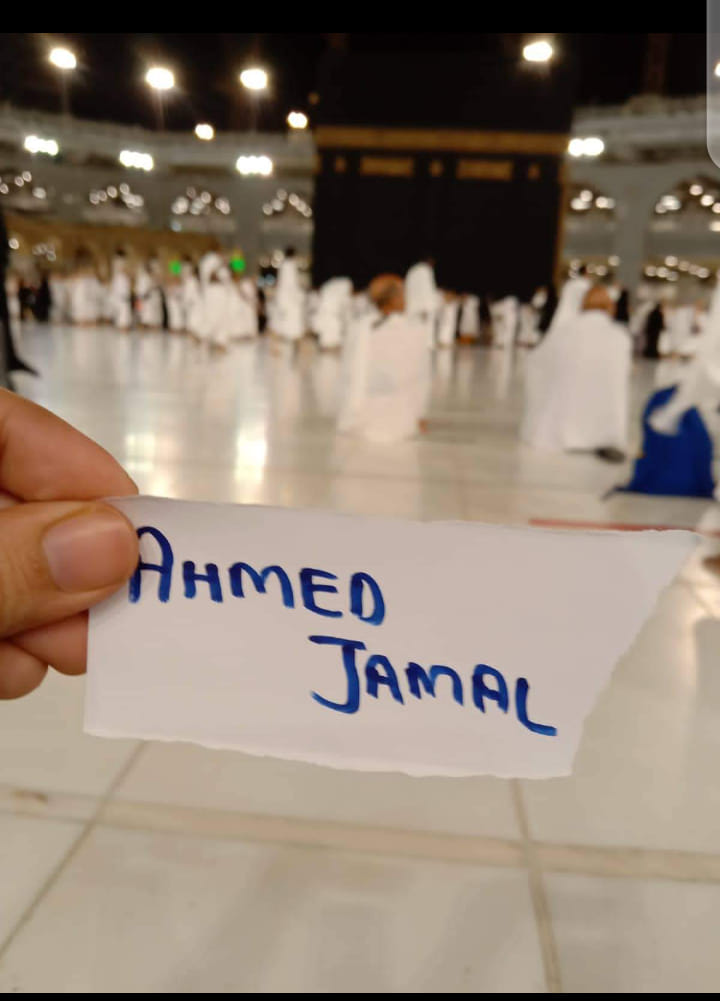 AHMED
JAMAL